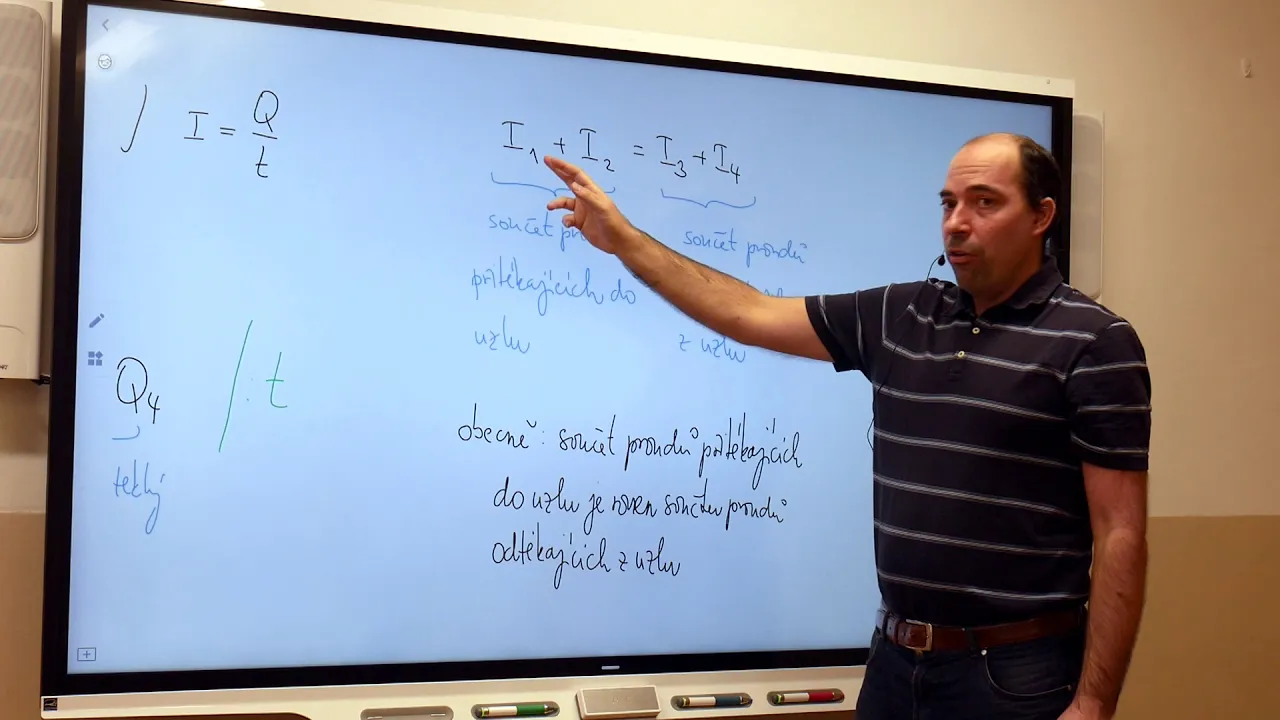 I = Q/t
I₁ + I₂ = I₃ + I₄
součet
součet proudů
přitékajících do
uzlu
z uzlu
Q₄ /: t
tekly
obecně: součet proudů přitékajících
do uzlu je roven součtu proudů
odtékajících z uzlu